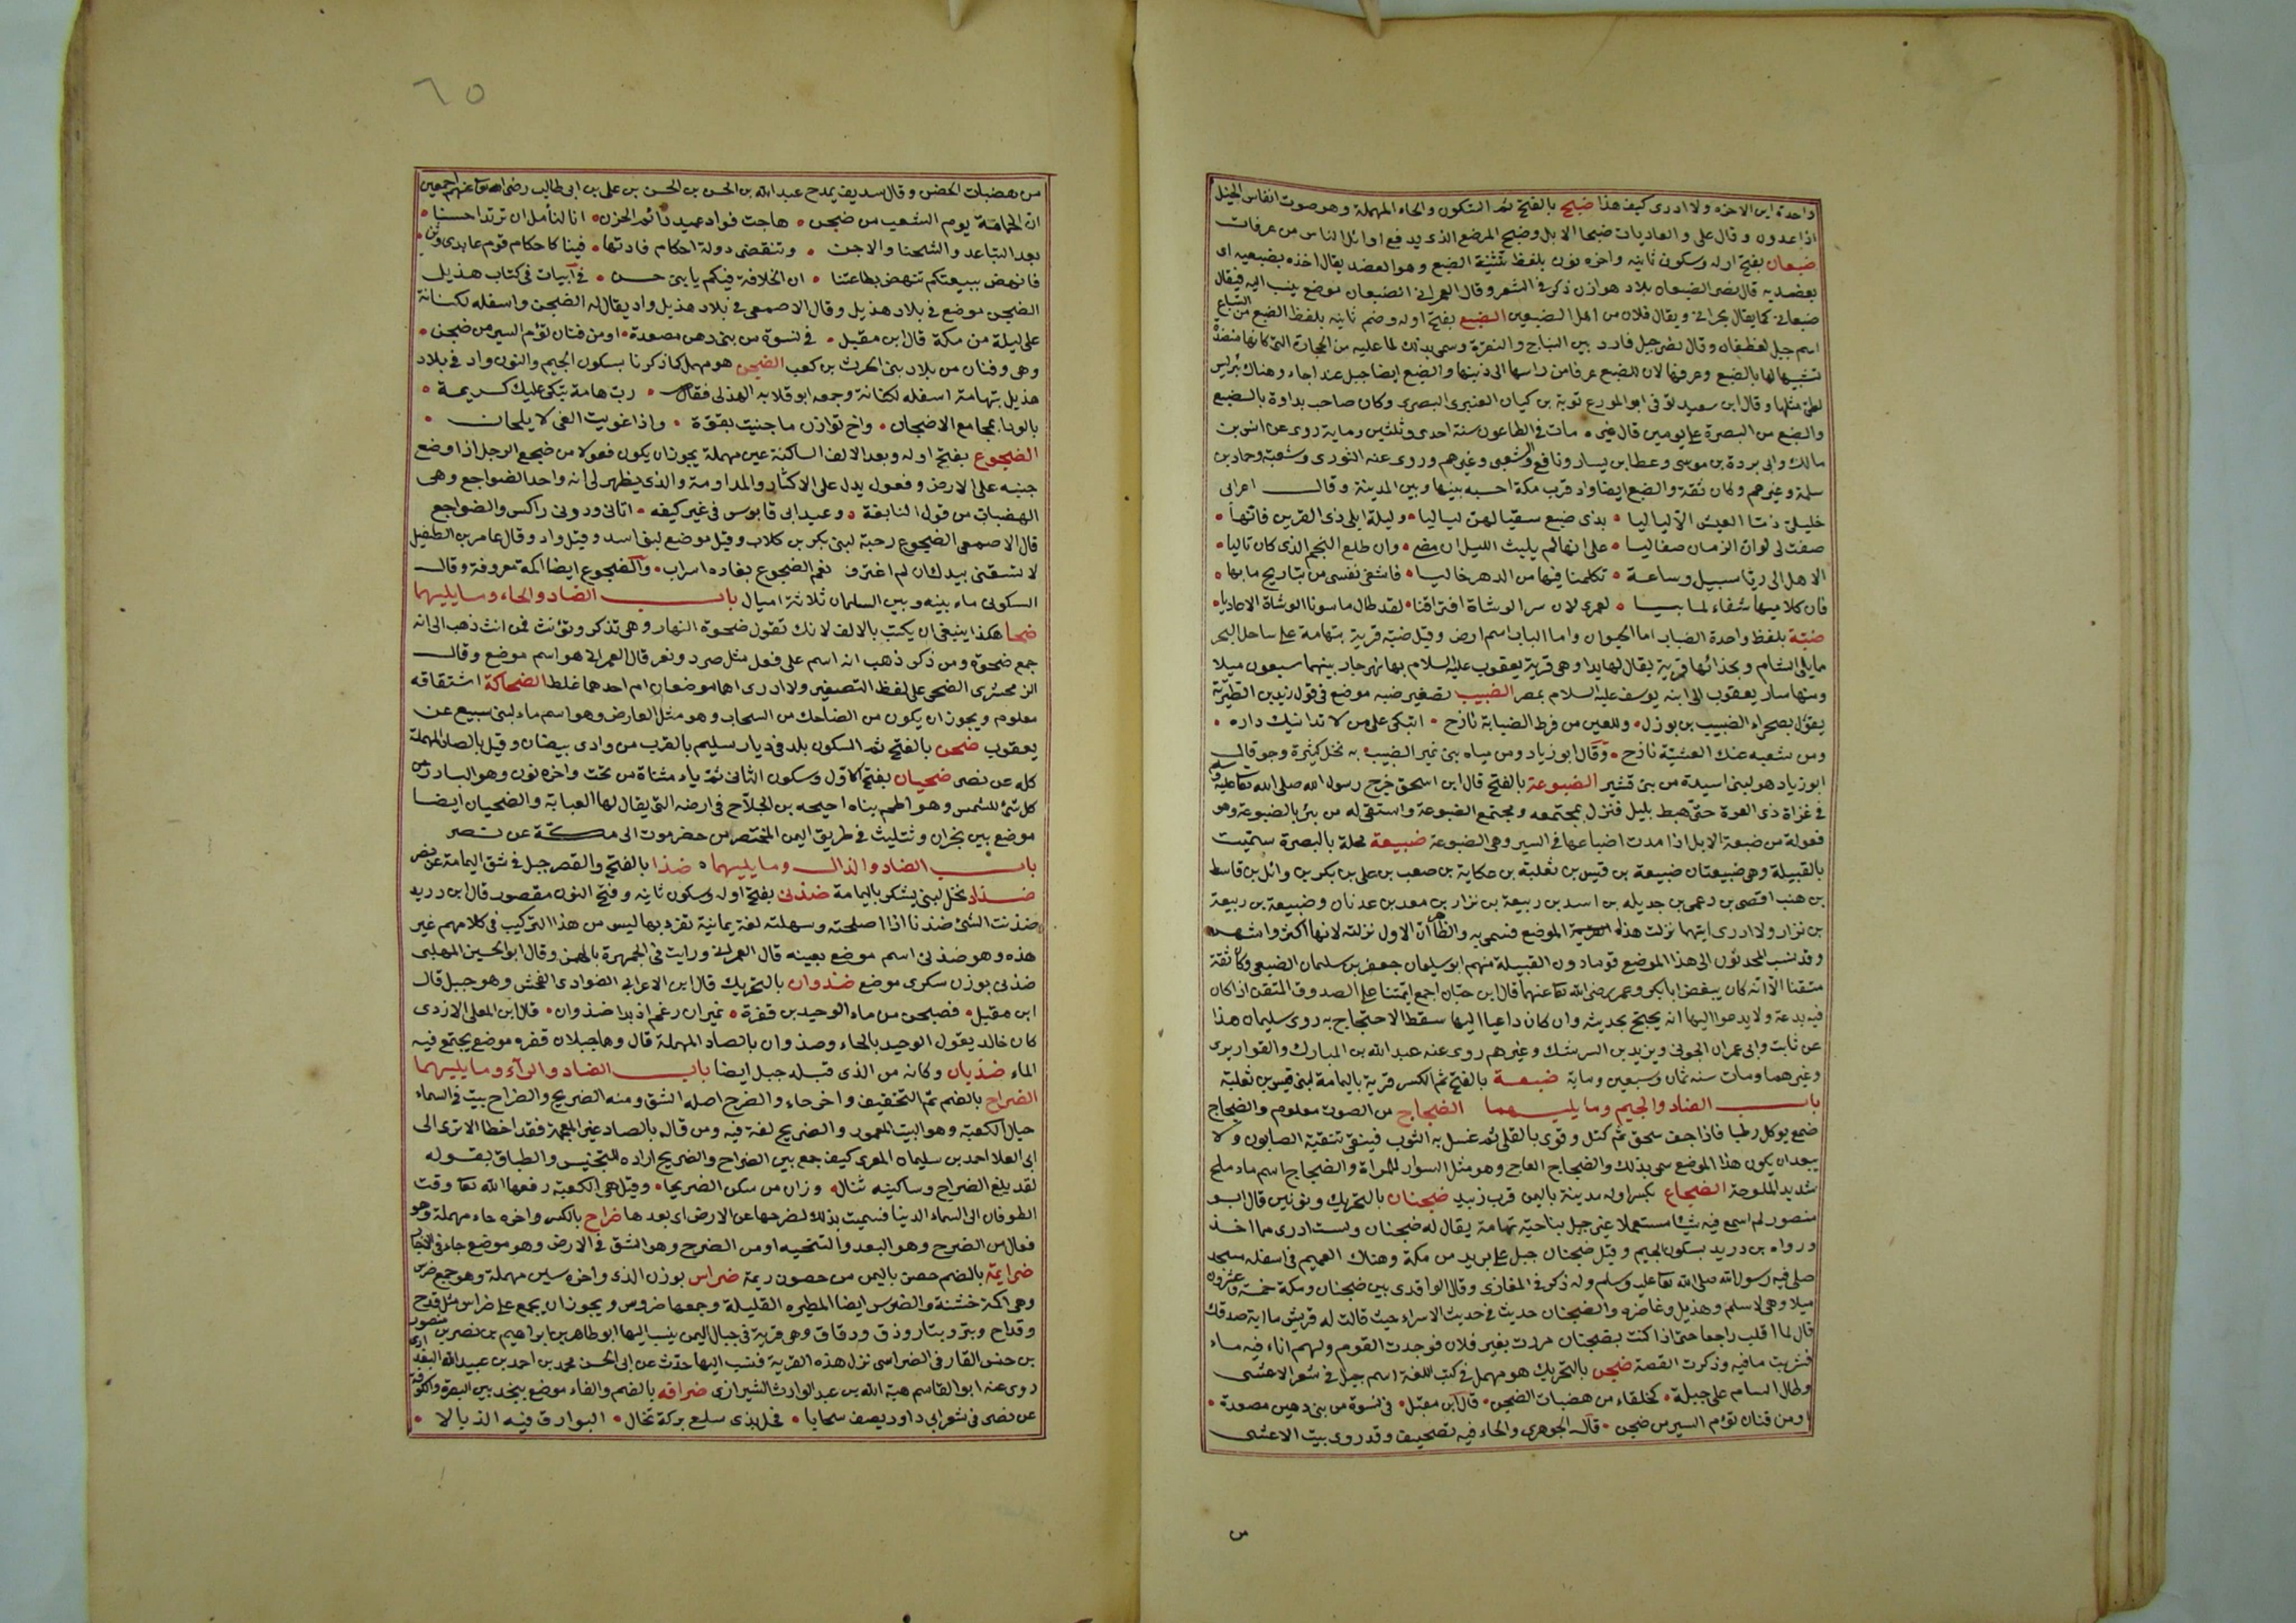 واحدة ابن الاخزه ولا ادرى كيف هذا ضبح بالفتح ثم السكون والحاء المهملة وهو صوت انفاس الخيل
اذا عدون وقال على والعاديات ضبحا الابل وضبح المرضع الذى يدفع اوائل الناس من عرفات
ضبعان بفتح اوله وسكون ثانيه واخره نون بلفظ تثنية الضبع وهو العضد يقال اخذه بضبعيه اى
بعضديه قال نصر الضبعان بلاد هوازن ذكر فى الشعر وقال العمرانى الضبعان موضع ينسب اليه فيقال
ضبعانى كما يقال بحرانى ويقال فلان من اهل الضبعين الضبع بفتح اوله وضم ثانيه بلفظ الضبع من السباع
اسم جبل لغطفان وقال نصر جبل فارد بين النباج والنقرة وسمى بذلك لما عليه من الحجارة التى كانها منضدة
تشبيها لها بالضبع وعرفها لان للضبع عرفا من راسها الى ذنبها والضبع ايضا جبل عند اجاء وهناك بئر ليس
لطئ مثلها وقال ابن سعيد توفى ابو المورع توبة بن كيسان العنبرى البصرى وكان صاحب بداوة بالضبع
والضبع من البصرة على يومين قال غيره مات فى الطاعون سنة احدى وثلثين وماية روى عن انس بن
مالك وابى بردة بن موسى وعطا بن يسار ونافع والشعبى وغيرهم وروى عنه الثورى وشعبة وحماد بن
سلمة وغيرهم وكان ثقة والضبع ايضا واد قرب مكة احسبه بينها وبين المدينة وقال اعرابى
خليلى ذما العيش الا لياليا • بذى ضبع سقيا لهن لياليا • وليلة ابلى ذى القرين فانها •
صفت لى لو ان الزمان صفا ليا • على انها لم يلبث الليل ان مضى • وان طلع النجم الذى كان تاليا •
الا هل الى ريا سبيل وساعة • تكلمنا فيها من الدهر خاليا • فاشفى نفسى من تباريح ما بها •
فان كلاميها شفاء لما بيا • لعمرى لان سر الوشاة افتراقنا • لقد طال ما سونا الوشاة الاعاديا •
ضبة بلفظ واحدة الضباب اما الحيوان واما الباب اسم ارض وقيل ضبة قرية بتهامة على ساحل البحر
مما يلى الشام وبحذائها قرية يقال لها بدا وهى قرية يعقوب عليه السلام بها نهر جار بينهما سبعون ميلا
ومنها سار يعقوب الى ابنه يوسف عليه السلام بمصر الضبيب تصغير ضبه موضع فى قول زيد بن الطثرية
يقول بصحراء الضبيب بن بوزل • وللعين من فرط الصبابة نازح • اتبكى على من لا تدانيك داره •
ومن شعبه عنك العشية نازح • وقال ابو زياد ومن مياه بنى نمير الضبيب به نخل كثيرة وجو قال
ابو زياد هو لبنى اسيدة من بنى قشير الضبوعة بالفتح قال ابن اسحق خرج رسول الله صلى الله تعا عليه وسلم
فى غزاة ذى العيرة حتى هبط بليل فنزل بمجتمعه ومجتمع الضبوعة واستقى له من بئر بالضبوعة وهو
فعولة من ضبعة الابل اذا مدت اضباعها فى السير وهى الضبوعة ضبيعة محلة بالبصرة سميت
بالقبيلة وهى ضبيعتان ضبيعة بن قيس بن ثعلبة بن عكاية بن صعب بن على بن بكر بن وائل بن قاسط
بن هنب افصى بن دعمى بن جديله بن اسد بن ربيعة بن نزار بن معد بن عدنان وضبيعة بن ربيعة
بن نزار ولا ادرى ايتهما نزلت هذا الموضع فسمى به والظاهر ان الاول نزلته لانها اكثر واشهر
وقد نسب المحدثون الى هذا الموضع قوما دون القبيلة منهم ابو سليمان جعفر بن سليمان الضبعى وكان ثقة
متقنا الا انه كان يبغض ابا بكر وعمر رضى الله تعا عنهما قال ابن حبان اجمع ائمتنا على الصدوق المتقن اذا كان
فيه بدعة ولا يدعو اليها انه يحتج بحديثه وان كان داعيا اليها سقط الاحتجاج به روى سليمان هذا
عن ثابت وابى عمران الجونى ويزيد بن الرشك وغيرهم روى عنه عبد الله بن المبارك والقواريرى
وغيرهما ومات سنه ثمان وسبعين وماية ضبعة بالفتح ثم الكسر قرية باليمامة لبنى قيس بن ثعلبة
باب الضاد والجيم وما يليهما الضجاج من الصوت معلوم والضجاج
صمغ يوكل رطبا فاذا جف سحق ثم كتل وقوى بالقلى ثم غسل به الثوب فينقى تنقية الصابون ولا
يبعد ان يكون هذا الموضع سمى بذلك والضجاج العاج وهو مثل السوار للمراة والضجاج اسم ماء ملح
شديد الملوحة الضجاع بكسر اوله مدينة باليمن قرب زبيد ضجنان بالتحريك ونونين قال ابو
منصور لم اسمع فيه شيئا مستعملا غير جبل بناحية تهامة يقال له ضجنان ولست ادرى مما اخذ
ورواه بن دريد بسكون الجيم وقيل ضجنان جبل على بريد من مكة وهناك الغميم فى اسفله مسجد
صلى فيه رسول الله صلى الله تعا عليه وسلم وله ذكر فى المغازى وقال الواقدى بين ضجنان ومكة خمسة وعشرون
ميلا وهى لاسلم وهذيل وغاضره والضجنان حديث فى حديث الاسراء حيث قالت له قريش ما اية صدقك
قال لما اقلب راجعا حتى اذا كنت بضجنان مررت بعير فلان فوجدت القوم ولهم اناء فيه ماء
فشربت ما فيه وذكرت القصة ضجن بالتحريك هو مهمل فى كتب اللغة اسم جبل فى شعر الاعشى
وطال السام على جبلة • كخلقاء من هضبات الضجن • قال ابن مقبل • فى نسوة من بنى دهين مصعدة •
او من قنان تؤم السير من ضجن • قال الجوهرى والحاء فيه تصحيف وقد روى بيت الاعشى
من
٦٥
من هضبات الحضن وقال سديف يمدح عبد الله بن الحسن بن الحسن بن على بن ابى طالب رضى الله تعا عنهم اجمعين
ان الحمامة يوم الشعب من ضجن • هاجت فواد عميد دائم الحزن • انا لنأمل ان ترتد احسنا •
بعد التباعد والشحنا والاحن • وتنقضى دولة احكام قادتها • فينا كاحكام قوم عابدى وثن •
فانهض ببيعتكم ننهض بطاعتنا • ان الخلافة فيكم يا بنى حسن • فى ابيات فى كتاب هذيل
الضجن موضع فى بلاد هذيل وقال الاصمعى فى بلاد هذيل واد يقال له الضجن واسفله لكنانة
على ليلة من مكة قال ابن مقبل • فى نسوة من بنى دهن مصعدة • او من قنان تؤم السير من ضجن •
وهى وقنان من بلاد بنى الحرث بن كعب الضجن هو مهمل كما ذكرنا بسكون الجيم والنون واد فى بلاد
هذيل بتهامة اسفله لكنانة وجمعه ابو قلابه الهذلى فقال • رب هامة تبكى عليك كريمة •
بالوذ بمجامع الاضجان • واخ توازن ما جنيت بقوة • واذا غويت الغى لا يلحان •
الضجوع بفتح اوله وبعد الالف الساكنة عين مهملة يجوز ان يكون فعولا من ضجع الرجل اذا وضع
جنبه على الارض وفعول يدل على الاكثار والمداومة والذى يظهر لى انه واحد الضواجع وهى
الهضبات من قول النابغة • وعيد ابى قابوس فى غير كنهه • اتانى ودونى راكس والضواجع
قال الاصمعى الضجوع رحبة لبنى بكر بن كلاب وقيل موضع لبنى اسد وقيل واد وقال عامر بن الطفيل
لا تسقنى بيدك ان لم اغترف نعم الضجوع بغاده اسراب • والضجوع ايضا اكمة معروفة وقال
السكونى ماء بينه وبين السلمان ثلاثة اميال باب الضاد والحاء وما يليهما
ضحا هكذا ينبغى ان يكتب بالالف لانك تقول ضحوة النهار وهى تذكر وتؤنث فمن انث ذهب الى انه
جمع ضحوة ومن ذكر ذهب انه اسم على فعل مثل صرد ونغر قال العمرانى هو اسم موضع وقال
الزمخشرى الضحى على لفظ التصغير ولا ادرى اهما موضعان ام احدهما غلط الضحاكة اشتقاقه
معلوم ويجوز ان يكون من الضاحك من السحاب وهو مثل العارض وهو اسم ماء لبنى سبيع عن
يعقوب ضحن بالفتح ثم السكون بلد فى ديار سليم بالقرب من وادى بيضان وقيل بالصاد المهملة
كله عن نصر ضحيان بفتح الاول وسكون الثانى ثم ياء مثناة من تحت واخره نون وهو البارز من
كل شئ للشمس وهو اطم بناه احيحه بن الجلاح فى ارضه التى يقال لها الغبابة والضحيان ايضا
موضع بين نجران وتثليث فى طريق اليمن المختصر من حضرموت الى مكة عن نصر
باب الضاد والذال وما يليهما • ضذا بالفتح والقصر جبل فى شق اليمامة عن نصر
ضذاد نخل لبنى يشكر باليمامة ضذنى بفتح اوله وسكون ثانيه وفتح النون مقصور قال ابن دريد
ضذنت الشئ ضذنا اذا اصلحته وسهلته لغة يمانية تفرد بها ليس من هذا التركيب فى كلامهم غير
هذه وهو ضذنى اسم موضع بعينه قال العمرانى ورايت فى الجمهرة بالهمز وقال ابو الحسين المهلبى
ضذنى بوزن سكرى موضع ضذوان بالتحريك قال ابن الاعرابى الضوادى الفحش وهو جبل قال
ابن مقبل • فصبحن من ماء الوحيد بن قفرة • نميران رغم اذ بدا ضذوان • قال ابن المعلى الازدى
كان خالد يقول الوحيد بالحاء وصذوان بالصاد المهملة قال وهما جبلان قفره موضع يجتمع فيه
الماء ضذيان وكانه من الذى قبله جبل ايضا باب الضاد والراء وما يليهما
الضراح بالضم ثم التخفيف واخر حاء والضرح اصله الشق ومنه الضريح والضراح بيت فى السماء
حيال الكعبة وهو البيت المعمور والضريح لغة فيه ومن قاله بالصاد غير المعجمة فقد اخطا الا ترى الى
ابى العلا احمد بن سليمان المعرى كيف جمع بين الضراح والضريح اراده للتجنيس والطباق بقوله
لقد بلغ الضراح وساكنيه نثاك وزان من سكن الضريحا • وقيل هى الكعبة رفعها الله تعا وقت
الطوفان الى السماء الدنيا فسميت بذلك لضرحها عن الارض اى بعدها ضراح بالكسر واخره حاء مهملة وهو
فعال من الضرح وهو البعد والتنحيه او من الضرح وهو الشق فى الارض وهو موضع جاء فى الاخبار
ضرايمة بالضم حصن باليمن من حصون ريمة ضراس بوزن الذى واخره سين مهملة وهو جمع ضرس
وهى اكمة خشنة والضرس ايضا المطيره القليلة وجمعها ضروس ويجوز ان يجمع على ضراس مثل قدح
وقداح وبئر وبئار وذق ودقاق وهى قرية فى جبال اليمن ينسب اليها ابو طاهر بن ابراهيم بن نصر بن منصور
بن حنش القارفى الضراسى نزل هذه القرية فنسب اليها حدث عن ابى الحسن محمد بن احمد بن عبيد الله البغدادى
روى عنه ابو القاسم هبة الله بن عبد الوارث الشيرازى ضرافه بالضم والفاء موضع بنجد بين البصرة والكوفة
عن نصر فى شعر ابى داود يصف سحابا • فحل بذى سلع بركة تخال • البوارق فيه الذبالا •